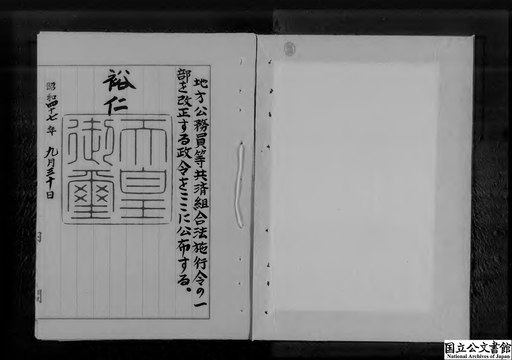 地方公務員等共済組合法施行令の一
部を改正する政令をここに公布する。
裕仁
天皇
御璽
昭和四十七年 九月三十日
国立公文書館
National Archives of Japan